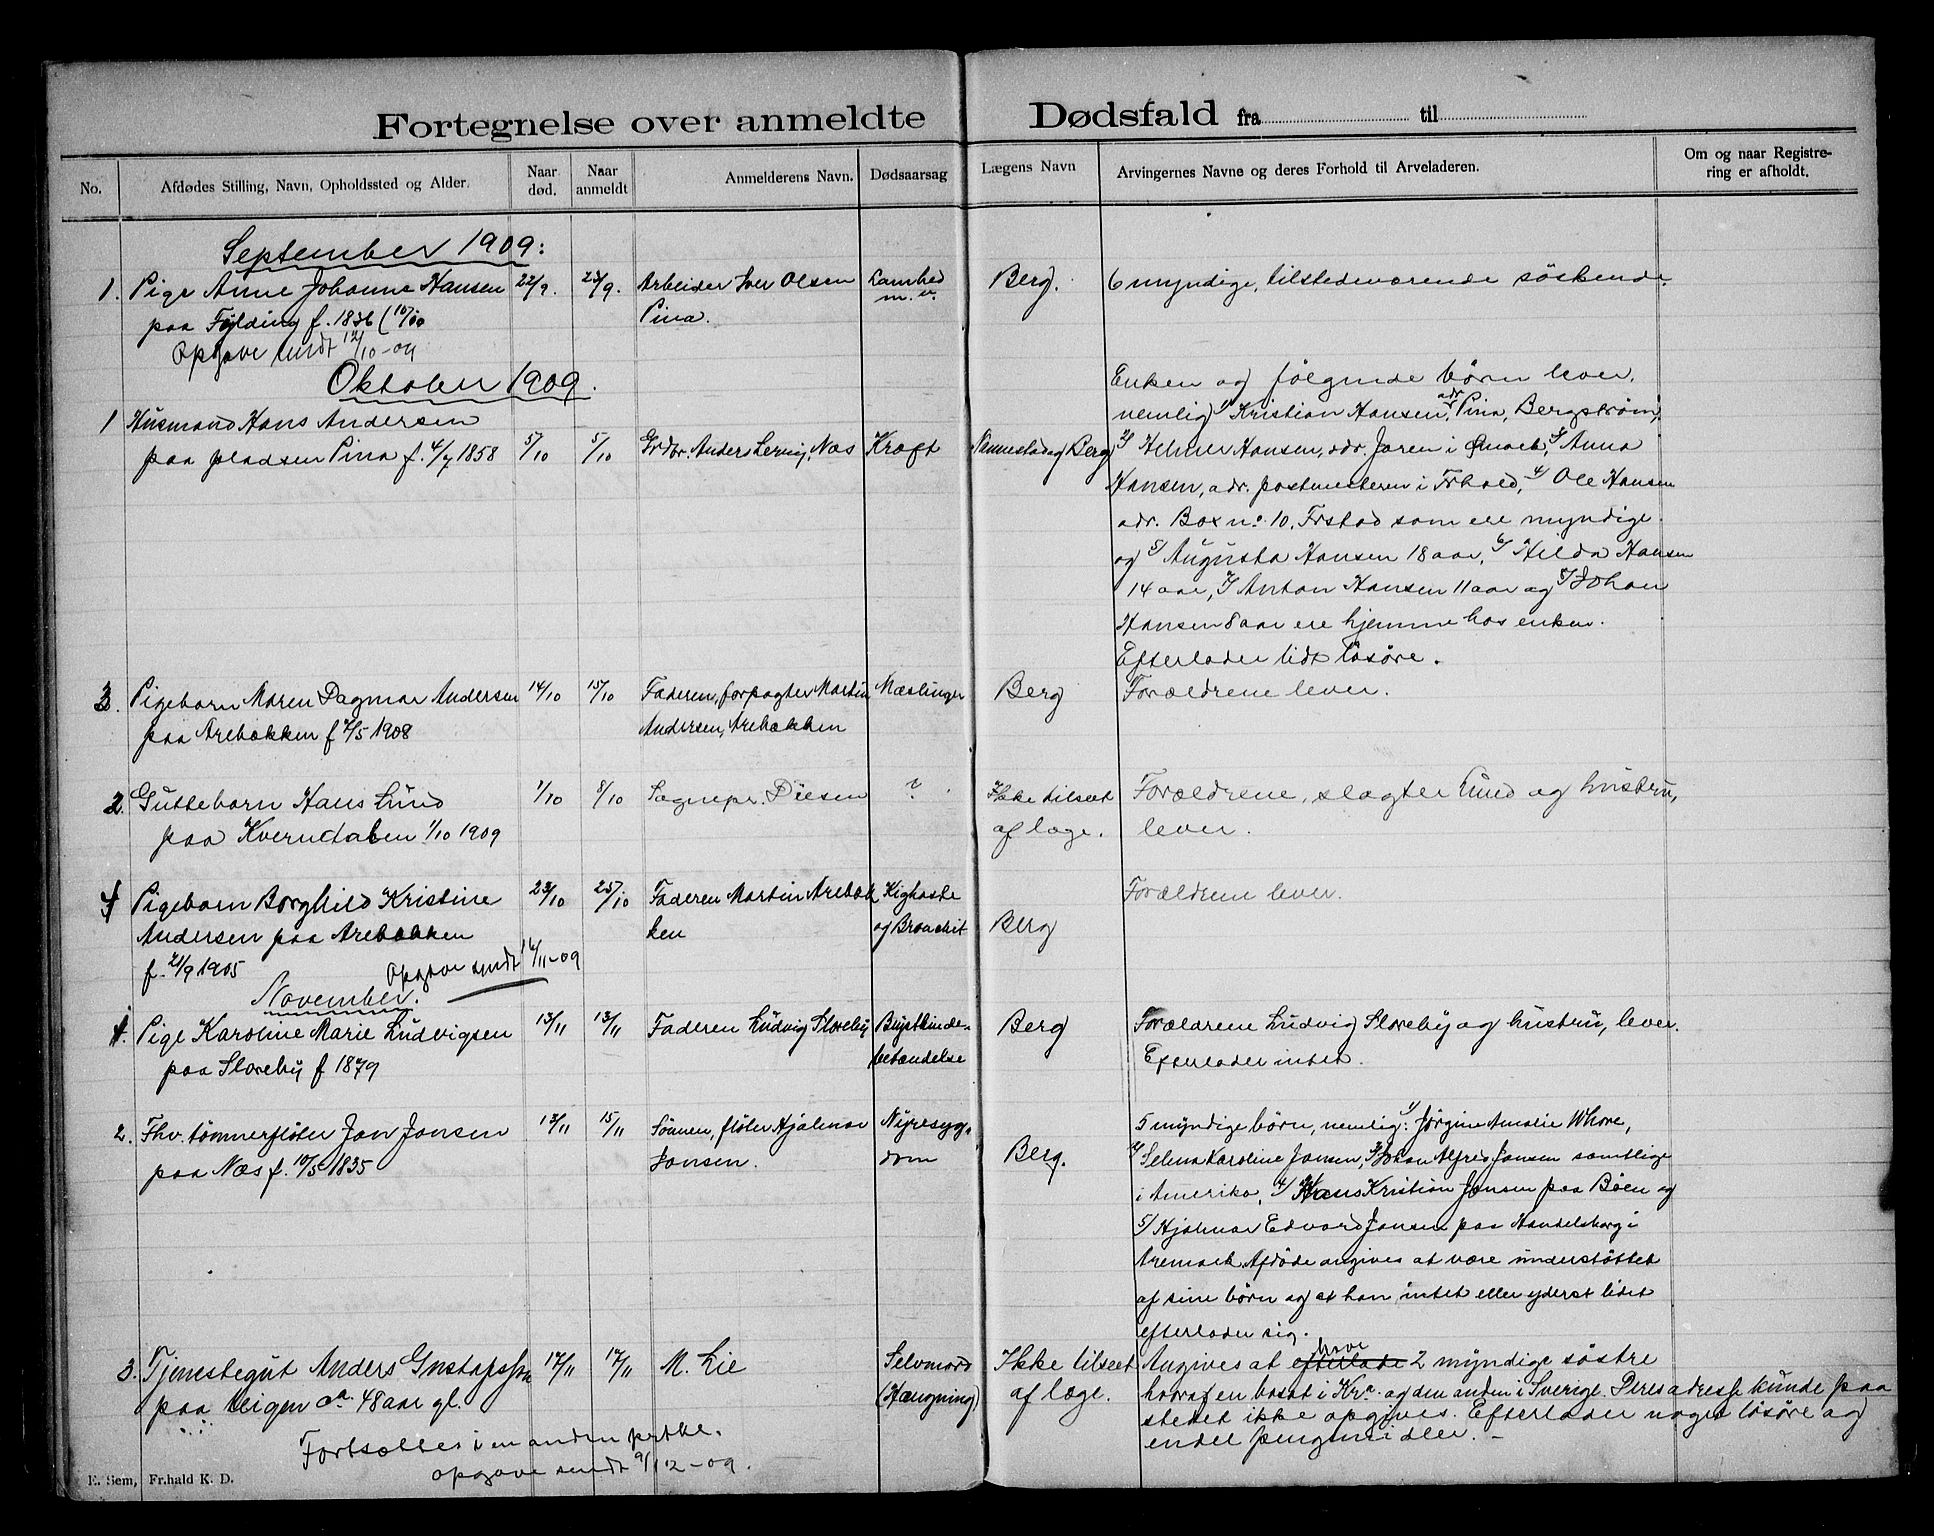 Fortegnelse over anmeldte Dødsfald fra til
No.
Afdødes Stilling, Navn, Opholdssted og Alder.
Naar død.
Naar anmeldt
Anmelderens Navn.
Dødsaarsag
Lægens Navn
Arvingernes Navne og deres Forhold til Arveladeren.
Om og naar Registre-
ring er afholdt.
September 1909:
1. Pige Anne Johanne Hansen 22/9. 23/9. Arbeider Iver Olsen Lamhed Berg. 6 myndige, tilstedeværende søskende.
paa Fylding f. 1836 (10/10 Pina. m.v.
Opgave sendt 12/10-09
Oktober 1909.
Enken og følgende børn lever,
1 Husmand Hans Andersen nemlig 1/ Kristian Hansen, adr. Pina, Bergstrøm,
paa pladsen Pina f. 4/7 1858 5/10 5/10 Grdbr. Anders Lervig, Næs Kræft Nannestad og Berg 2/ Helmer Hansen, adr. Joren i Ømark, 3/ Anna
Hansen, adr. postmesteren i Frhald, 4/ Ole Hansen
adr. Box no. 10, Frstad som ere myndige
og 5/ Augusta Hansen 18 aar, 6/ Hilda Hansen
14 aar, 7/ Anton Hansen 11 aar og 8/ Johan
Hansen 8 aar ere hjemme hos enken.
Efterlader lidt løsøre.
3. Pigebarn Maren Dagmar Andersen 14/10 15/10 Faderen, forpagter Martin Mæslinger Berg Forældrene lever.
paa Arebækken f 2/5 1908 Andersen, Arebækken
2. Guttebarn Hans Lund 1/10 8/10 Sognepr. Diesen ? Ikke tilseet Forældrene, slagter Lund og hustru,
paa Kverndalen 1/10 1909 af læge. lever.
4 Pigebarn Borghild Kristine 23/10 25/10 Faderen Martin Arebæk Kighoste Forældrene lever.
Andersen paa Arebækken ken og Bronchit Berg
f. 21/9 1905 Opgave sendt 16/11-09
November.
1. Pige Karoline Marie Ludvigsen 13/11 13/11 Faderen Ludvig Sloreby Brysthinde- Berg Forældrene Ludvig Sloreby og hustru, lever.
paa Sloreby f 1879 betændelse Efterlader intet.
2. Fhv. tømmerfløter Jan Jansen 13/11 15/11 Sønnen, fløter Hjalmar Nyresyg- Berg. 5 myndige børn, nemlig: 1/ Jørgine Amalie Whore,
paa Næs f. 10/5 1835 Jansen. dom 2/ Selma Karoline Jansen, 3/ Johan Alfred Jansen samtlige
i Amerika, 4/ Hans Kristian Jansen paa Bøen og
5/ Hjalmar Edvard Jansen paa Handelsborg i
Aremark. Afdøde angives at være understøttet
af sine børn og at han intet eller yderst lidet
efterlader sig.
3. Tjenestegut Anders Gustafsson 17/11 17/11 M. Lie Selvmord Ikke tilseet Angives at efterlade have 2 myndige søstre
paa Leigen ca. 48 aar gl. (Hængning) af læge. hvoraf en bosat i Kr.a og den anden i Sverige. Deres adresse kunde paa
stedet ikke opgives. Efterlader noget løsøre og
endel pengemidler. -
Fortsættes i en anden protokol.
opgave sendt 9/12-09.
E. Sem, Fr.hald K. D.